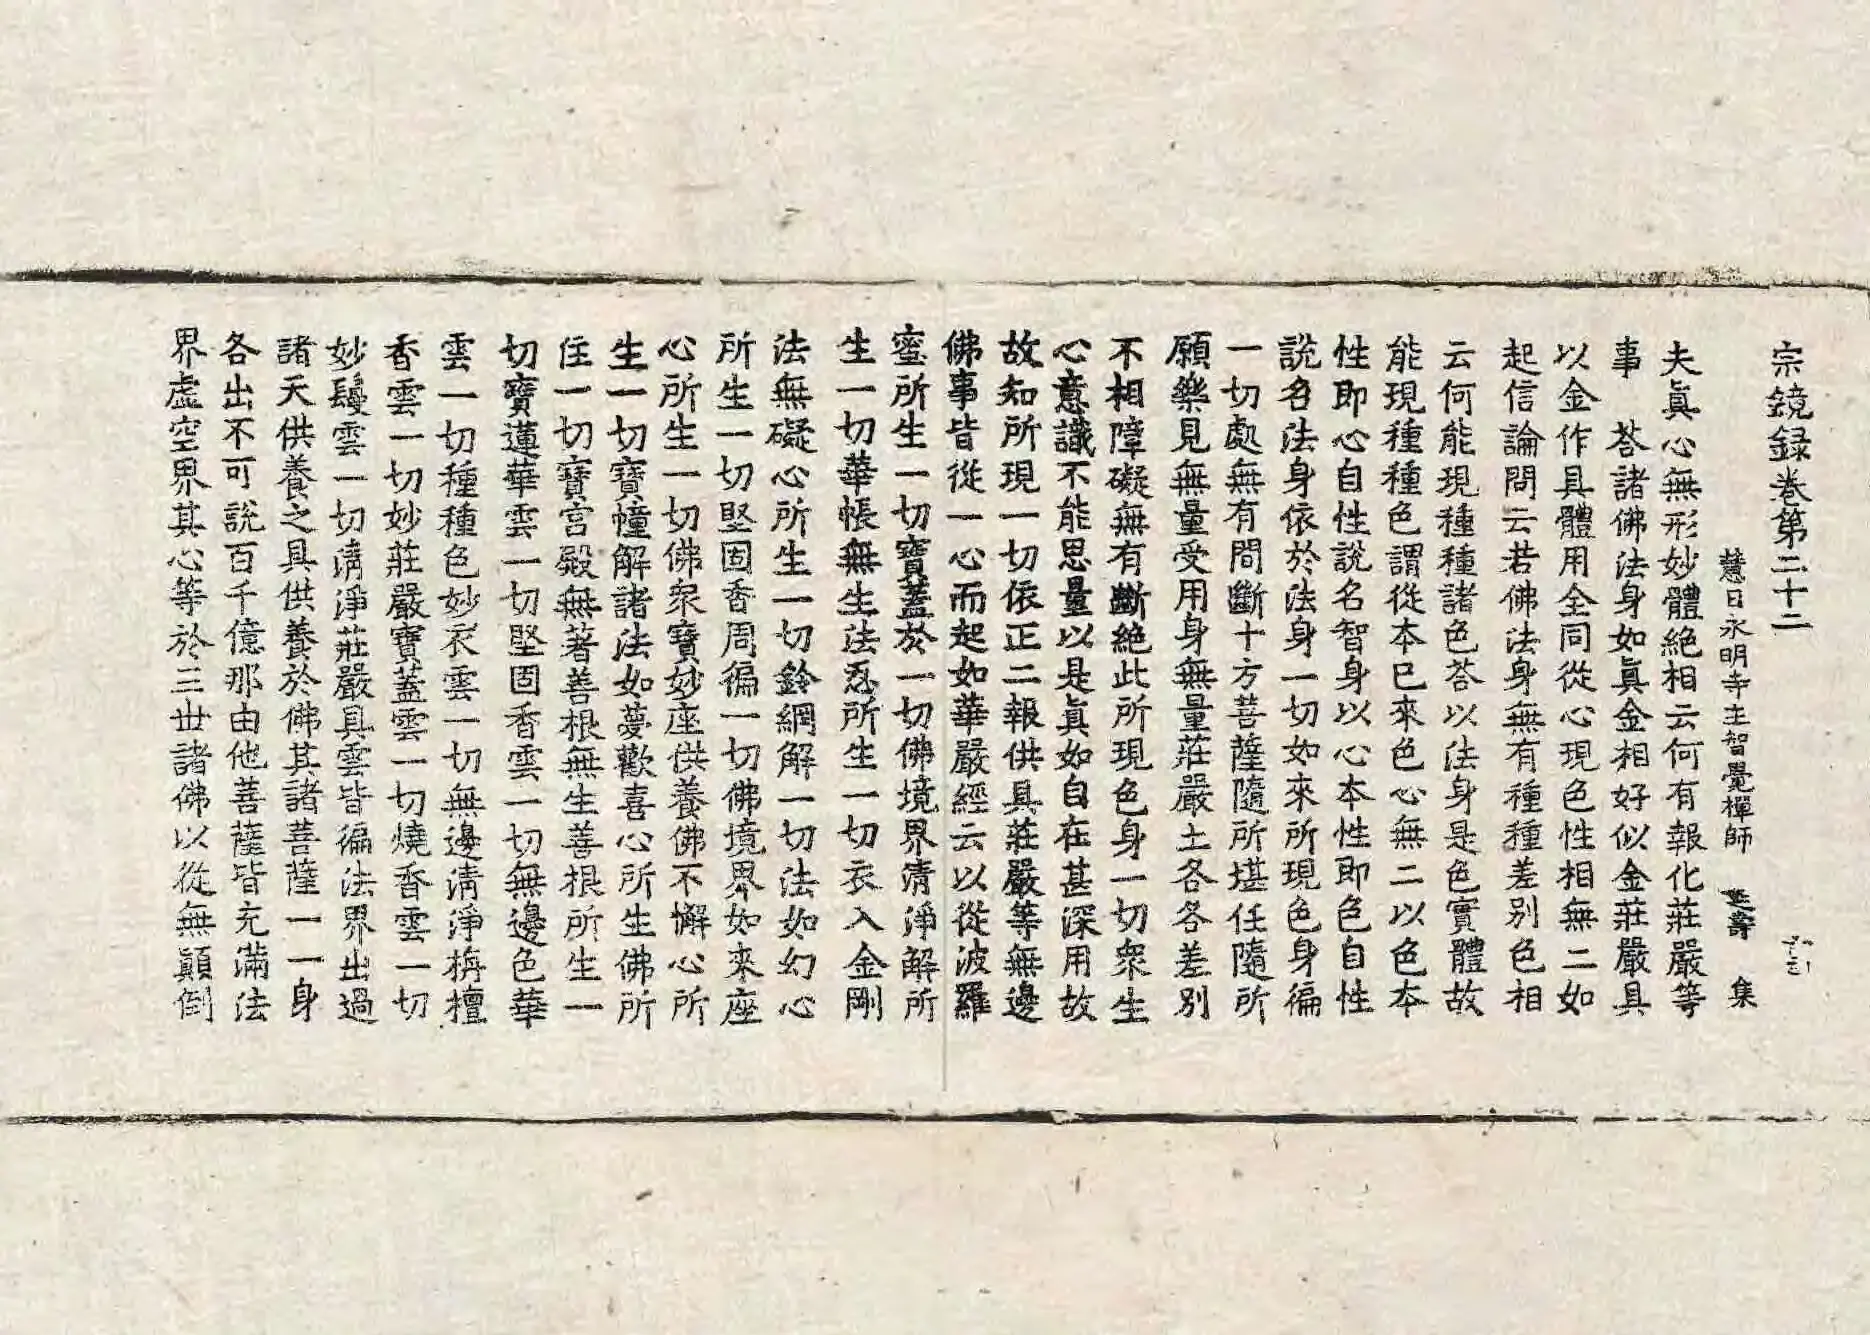 宗鏡録巻第二十二
慧日永明寺主智覺禪師 延壽 集
夫眞心無形妙體絶相云何有報化莊嚴等
事 荅諸佛法身如眞金相好似金莊嚴具
以金作具體用全同從心現色性相無二如
起信論問云若佛法身無有種種差別色相
云何能現種種諸色荅以法身是色實體故
能現種種色謂從本已來色心無二以色本
性即心自性說名智身以心本性即色自性
說名法身依於法身一切如來所現色身徧
一切處無有間斷十方菩薩隨所堪任隨所
願樂見無量受用身無量莊嚴土各各差別
不相障礙無有斷絶此所現色身一切衆生
心意識不能思量以是眞如自在甚深用故
故知所現一切依正二報供具莊嚴等無邊
佛事皆從一心而起如華嚴經云以從波羅
蜜所生一切寶蓋於一切佛境界清淨解所
生一切華帳無生法忍所生一切衣入金剛
法無礙心所生一切鈴網解一切法如幻心
所生一切堅固香周徧一切佛境界如來座
心所生一切佛衆寶妙座供養佛不懈心所
生一切寶幢解諸法如夢歡喜心所生佛所
住一切寶宮殿無著善根無生善根所生一
切寶蓮華雲一切堅固香雲一切無邊色華
雲一切種種色妙衣雲一切無邊清淨栴檀
香雲一切妙莊嚴寶蓋雲一切燒香雲一切
妙鬘雲一切清淨莊嚴具雲皆徧法界出過
諸天供養之具供養於佛其諸菩薩一一身
各出不可說百千億那由他菩薩皆充滿法
界虛空界其心等於三世諸佛以從無顚倒